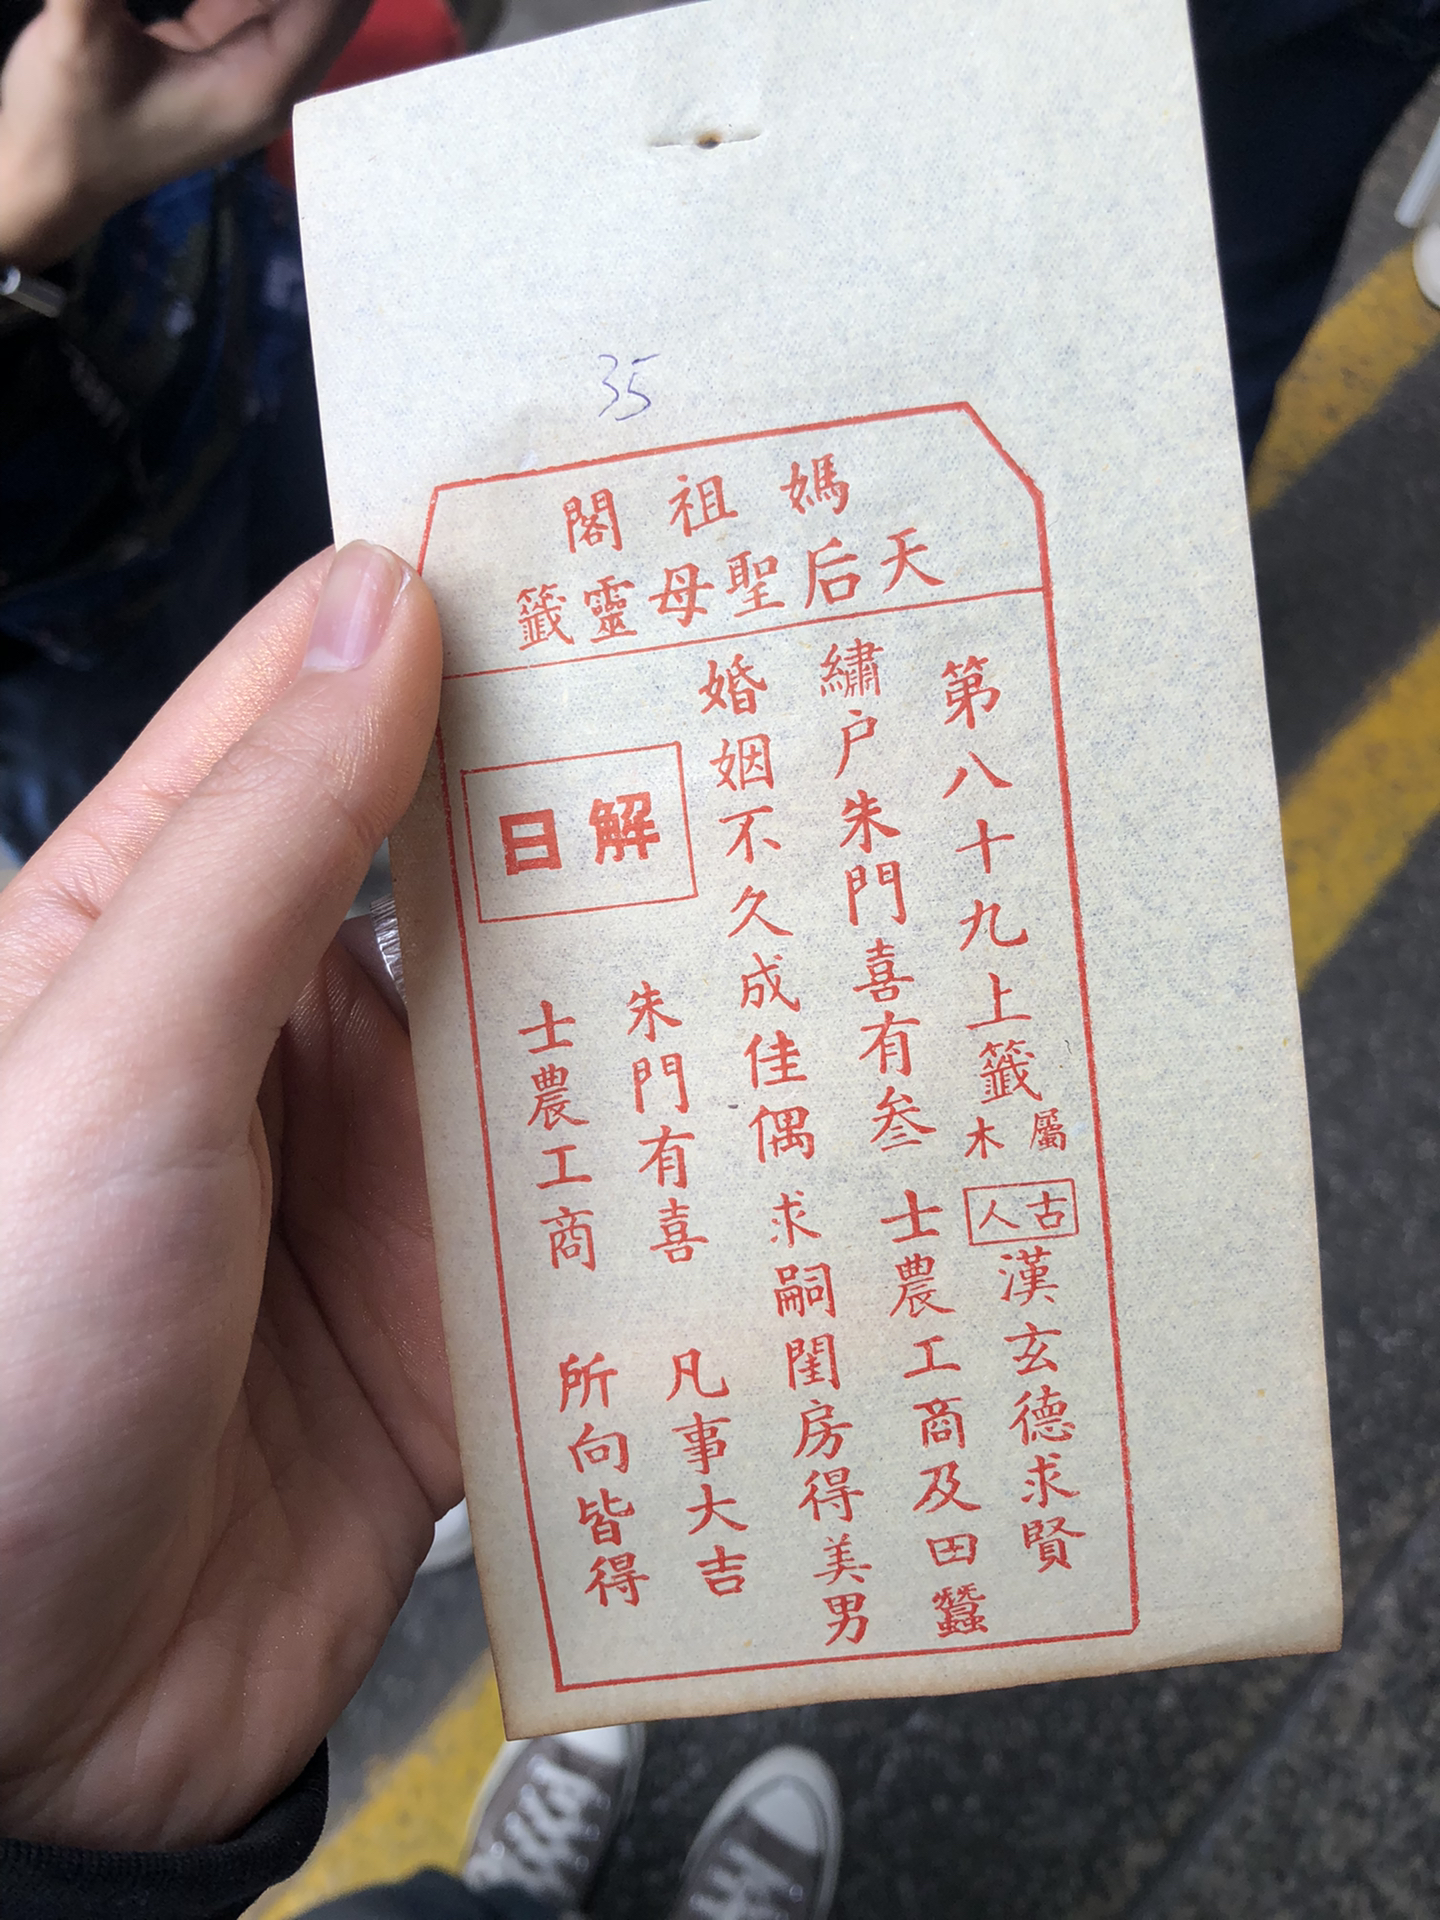 35
媽祖閣
天后聖母靈籤
第八十九上籤 屬木 古人 漢玄德求賢
繡户朱門喜有叁 士農工商及田蠶
婚姻不久成佳偶 求嗣閨房得美男
解曰
朱門有喜 凡事大吉
士農工商 所向皆得